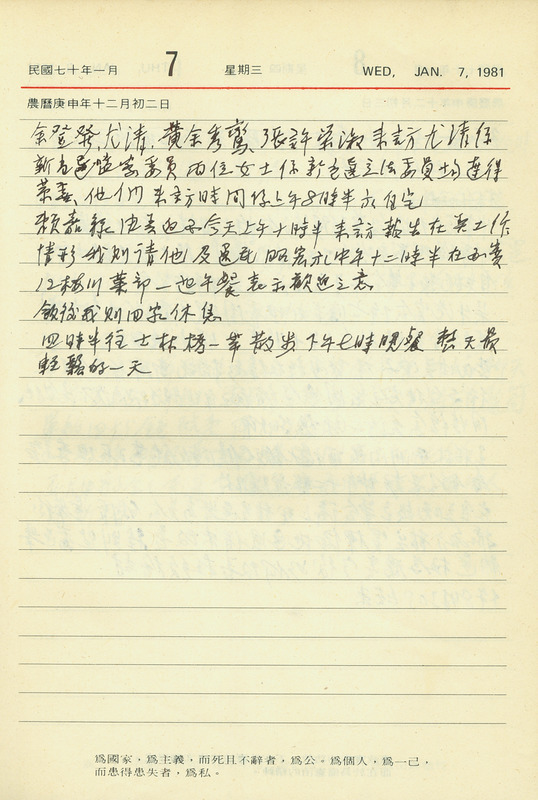 民國七十年一月 7 星期三 WED, JAN. 7, 1981
農曆庚申年十二月初二日
余登發、尤清、黃余秀鸞、張許榮淑來訪尤清係
新當選監察委員兩位女士係新當選立法委員均連袂
來訪時間係上午8時半於自宅
賴嘉 今天上午十時半來訪報告在美工作
情形我則請他及 昭宏於中午十二時半在
12梅川菜部一起午餐表示歡迎之意
飯後我則回家休息
四時半往士林橋一帶散步下午七時晚餐 整天最
輕鬆的一天
為國家,為主義,而死且不辭者,為公。為個人,為一己,
而患得患失者,為私。